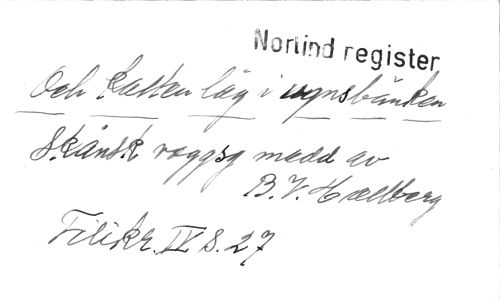 Norlind register
Och katten låg i ugnsbänken
Skånsk vaggsg medd av
B.V. Hallberg
Filikr. IV S. 27